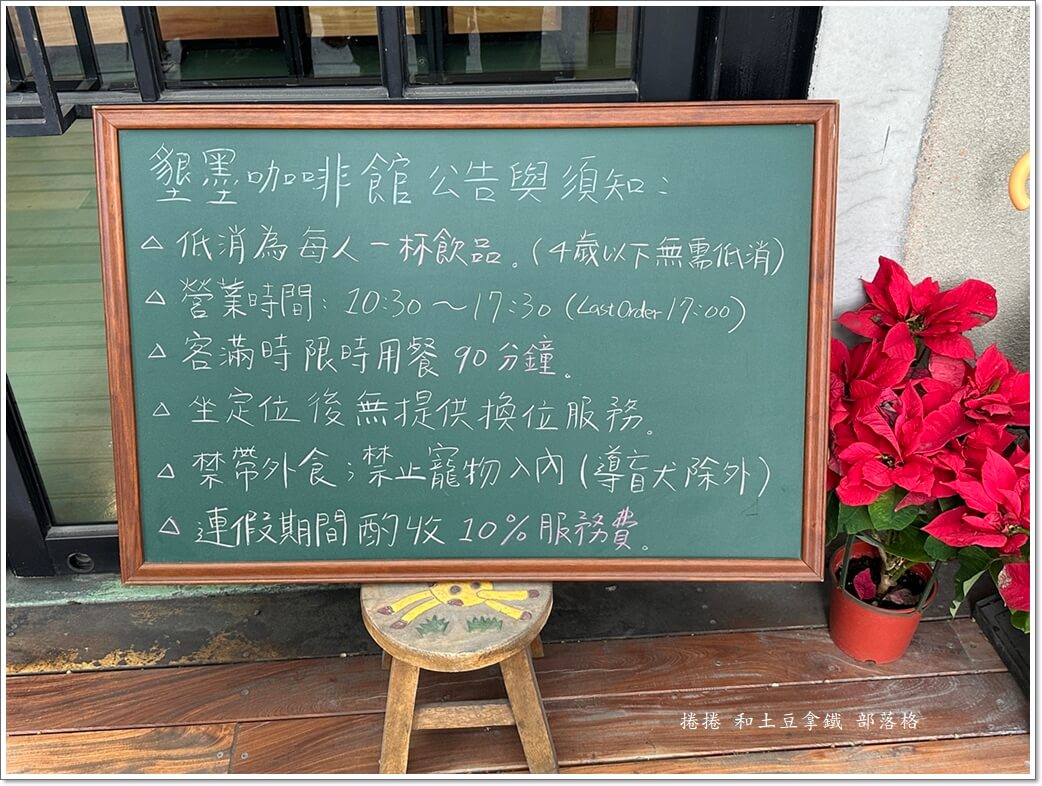 墾墨咖啡館 公告與須知：
△ 低消為每人一杯飲品。(4歲以下無需低消)
△ 營業時間：10:30～17:30 (Last Order 17:00)
△ 客滿時限時用餐90分鐘。
△ 坐定位後無提供換位服務。
△ 禁帶外食；禁止寵物入內(導盲犬除外)
△ 連假期間酌收10%服務費。
捲捲 和土豆拿鐵 部落格